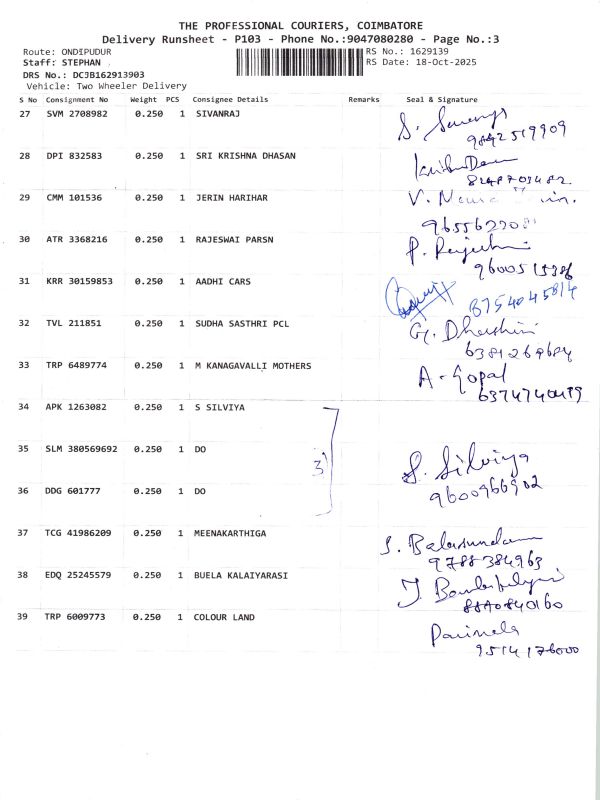 THE PROFESSIONAL COURIERS, COIMBATORE
Delivery Runsheet - P103 - Phone No.:9047080280 - Page No.:3
Route: ONDIPUDUR RS No.: 1629139
Staff: STEPHAN RS Date: 18-Oct-2025
DRS No.: DCJB162913903
Vehicle: Two Wheeler Delivery
S No Consignment No Weight PCS Consignee Details Remarks Seal & Signature
27 SVM 2708982 0.250 1 SIVANRAJ S.
9842519909
28 DPI 832583 0.250 1 SRI KRISHNA DHASAN
8248703482
29 CMM 101536 0.250 1 JERIN HARIHAR V.
30 ATR 3368216 0.250 1 RAJESWAI PARSN
31 KRR 30159853 0.250 1 AADHI CARS
8754045814
32 TVL 211851 0.250 1 SUDHA SASTHRI PCL G. Dharshini
33 TRP 6489774 0.250 1 M KANAGAVALLI MOTHERS A-Gopal
34 APK 1263082 0.250 1 S SILVIYA
35 SLM 380569692 0.250 1 DO 3 S. Silviya
36 DDG 601777 0.250 1 DO 9600966902
37 TCG 41986209 0.250 1 MEENAKARTHIGA S. Balasundaram
9788384963
38 EDQ 25245579 0.250 1 BUELA KALAIYARASI J.
8870840160
39 TRP 6009773 0.250 1 COLOUR LAND Parimela
9514176000